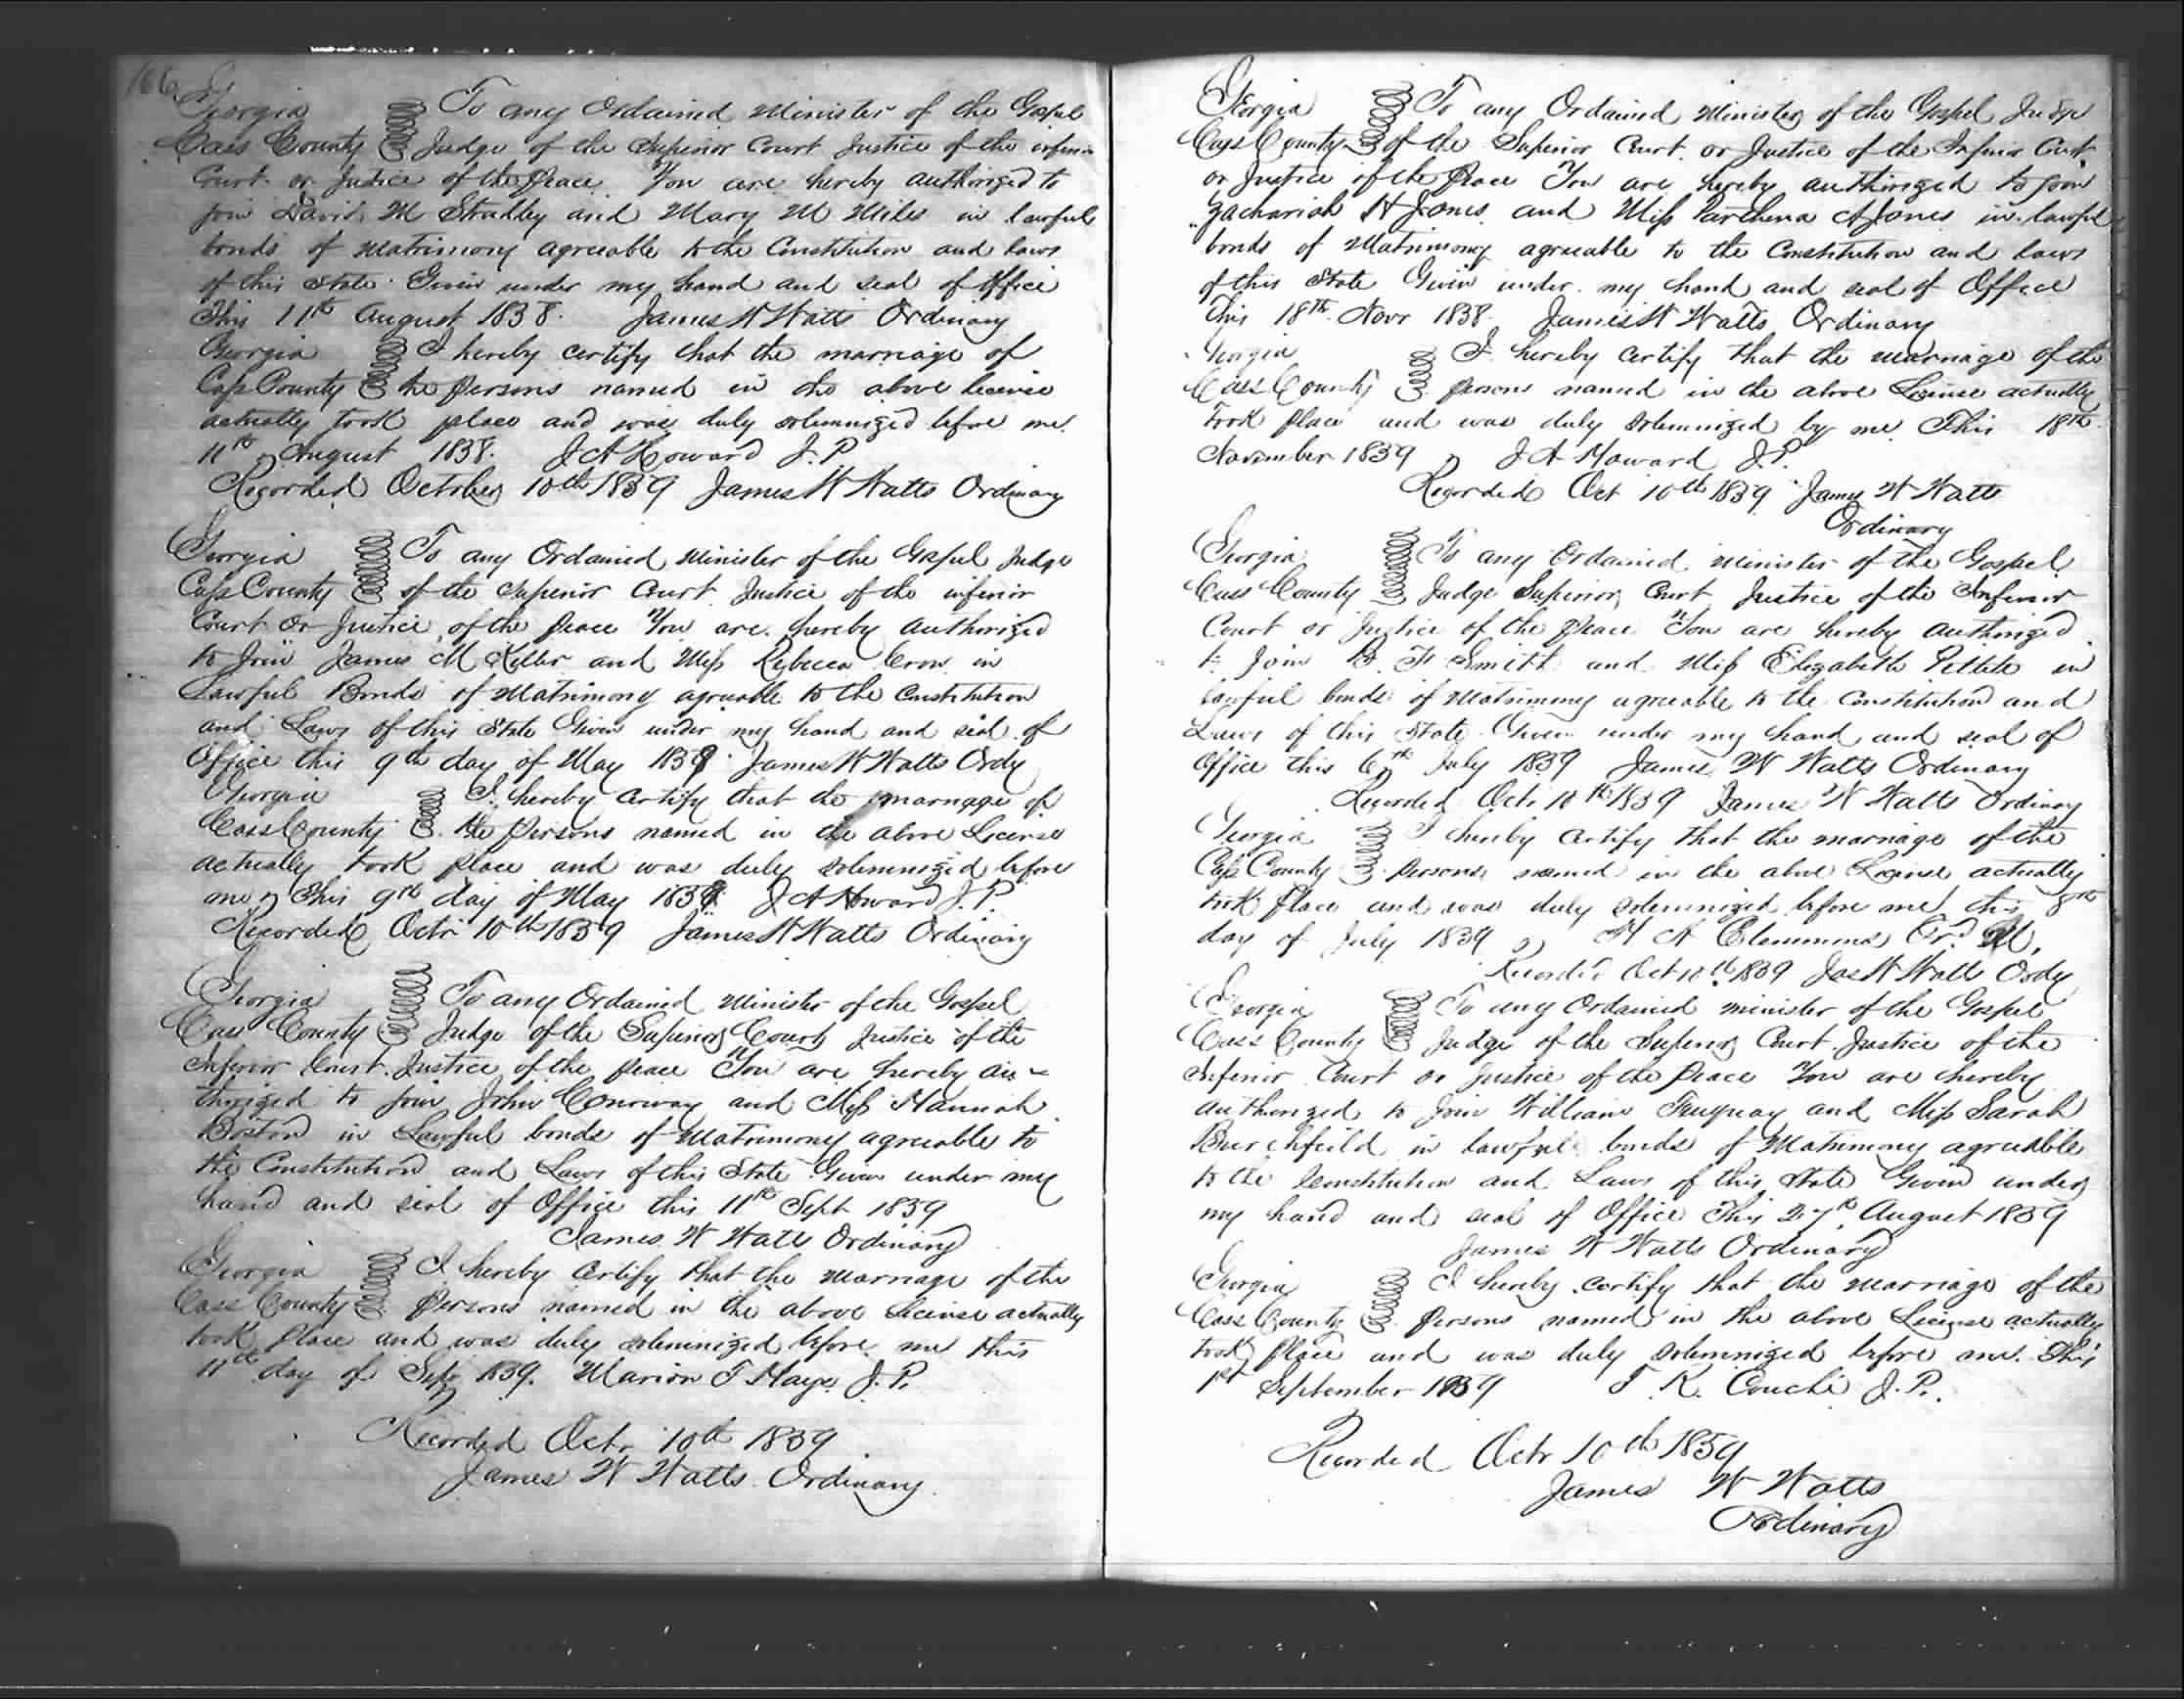 166
Georgia To any Ordained Minister of the Gospel
Cass County Judge of the Superior Court Justice of the inferior
Court or Justice of the Peace You are hereby authorized to
join David M Stradley and Mary M Miles in lawful
bonds of Matrimony agreeable to the Constitution and laws
of this State Given under my hand and seal of Office
This 11th August 1838. James W Watts Ordinary
Georgia I hereby certify that the marriage of
Cass County the persons named in the above license
actually took place and was duly solemnized before me.
11th August 1838. J A Howard J. P
Recorded October 10th 1839 James W Watts Ordinary
Georgia To any Ordained Minister of the Gospel Judge
Cass County of the Superior Court Justice of the inferior
Court or Justice of the peace You are hereby authorized
to Join James M Keller and Miss Rebecca Crow in
Lawful Bonds of Matrimony agreeable to the Constitution
and Laws of this State Given under my hand and seal of
Office this 9th day of May 1839 James W Watts Ordy
Georgia I hereby certify that the marriage of
Cass County the persons named in the above License
actually took place and was duly solemnized before
me This 9th day of May 1839 J A Howard J. P.
Recorded Octr 10th 1839 James W Watts Ordinary
Georgia To any Ordained Minister of the Gospel
Cass County Judge of the Superior Court Justice of the
Inferior Court Justice of the peace You are hereby au-
thorized to join John Conoway and Miss Hannah
Boston in Lawful bonds of Matrimony agreeable to
the Constitution and Laws of this State Given under my
hand and seal of Office this 11th Sept 1839
James W Watts Ordinary
Georgia I hereby certify that the marriage of the
Cass County persons named in the above license actually
took place and was duly solemnized before me this
11th day of Sept 1839. Marion T Hays J. P.
Recorded Octr 10th 1839
James W Watts Ordinary
Georgia To any Ordained Minister of the Gospel Judge
Cass County of the Superior Court or Justice of the Inferior Court
or Justice of the Peace You are hereby authorized to join
Zachariah H Jones and Miss Parthena A Jones in lawful
bonds of Matrimony agreeable to the Constitution and laws
of this State Given under my hand and seal of Office
This 18th Novr 1838 James W Watts Ordinary
Georgia I hereby certify that the marriage of the
Cass County persons named in the above License actually
took place and was duly solemnized by me This 18th
November 1839 J A Howard J. P.
Recorded Oct 10th 1839 James W Watts
Ordinary
Georgia To any Ordained minister of the Gospel
Cass County Judge Superior Court Justice of the Inferior
Court or Justice of the Peace You are hereby authorized
to Join B. F Smith and Miss Elizabeth in
lawful bonds of Matrimony agreeable to the Constitution and
Laws of this State Given under my hand and seal of
Office this 6th July 1839 James W Watts Ordinary
Recorded Octr 10th 1839 James W Watts Ordinary
Georgia I hereby certify that the marriage of the
Cass County persons named in the above License actually
took place and was duly solemnized before me this 8th
day of July 1839 A Clemmons Ord M.
Recorded Oct 10th 1839 Jas W Watts Ordy
Georgia To any Ordained minister of the Gospel
Cass County Judge of the Superior Court Justice of the
Inferior Court or Justice of the Peace You are hereby
authorized to Join William Fuquay and Miss Sarah
Burchfeild in lawful bonds of Matrimony agreeable
to the Constitution and Laws of this State Given under
my hand and seal of Office This 27th August 1839
James W Watts Ordinary
Georgia I hereby certify that the marriage of the
Cass County persons named in the above License actually
took place and was duly solemnized before me. This
1st September 1839 T. K. Couch J. P.
Recorded Octr 10th 1859
James W Watts
Ordinary